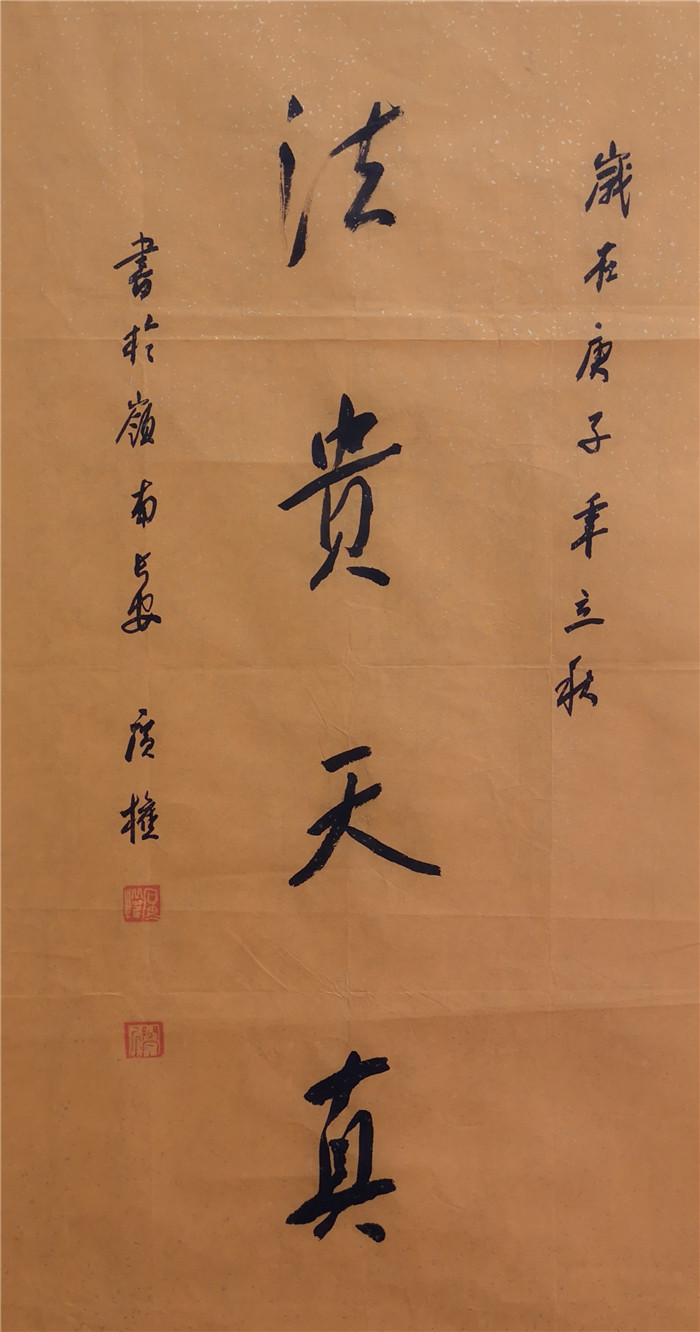 歲在庚子年立秋
法贵天真
書於嶺南长安